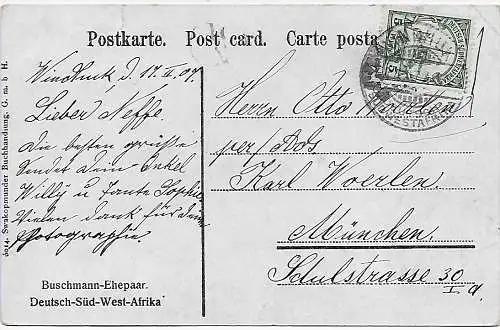 Postkarte. Post card. Carte posta
Windhuk, d. 17. II. 09.
Lieber Neffe.
Die besten grüße
sendet dein Onkel
Willy u Tante Sophie
Vielen Dank für dein
Photographie.
Buschmann-Ehepaar.
Deutsch-Süd-West-Afrika
Swakopmunder Buchhandlung, G. m. b H.
Herrn Otto Woerlen
per/Ads
Karl Woerlen.
München.
Schulstrasse 30
I a.